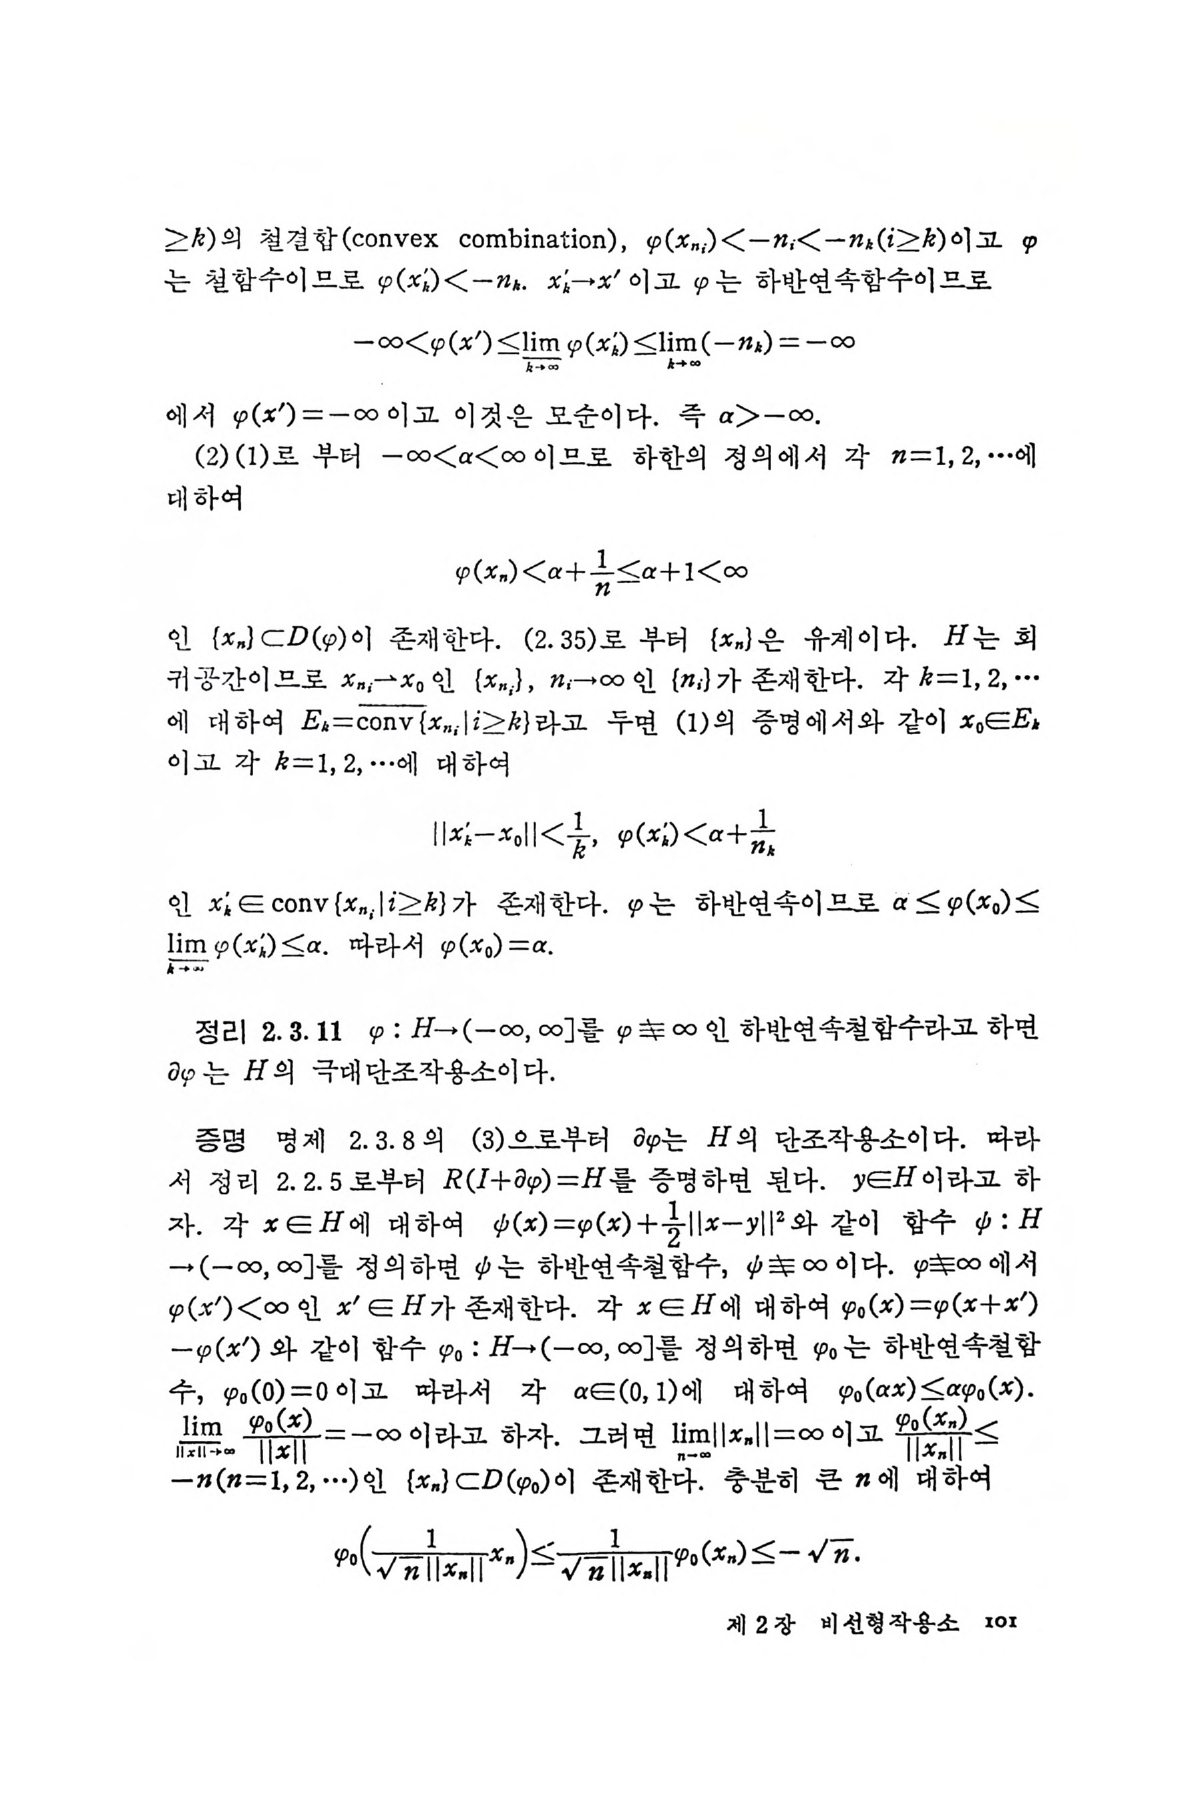 ≥k)의 철결합(convex combination), φ(xₙᵢ)<−nᵢ<−nₖ(i≥k)이고 φ
는 철함수이므로 φ(x′ₖ)<−nₖ. x′ₖ→x′ 이고 φ는 하반연속함수이므로
−∞<φ(x′)≤lim φ(x′ₖ)≤lim(−nₖ)=−∞
k→∞ k→∞
에서 φ(x′)=−∞이고 이것은 모순이다. 즉 α>−∞.
(2)(1)로 부터 −∞<α<∞이므로 하한의 정의에서 각 n=1, 2, ···에
대하여
φ(xₙ)<α+1/n≤α+1<∞
인 {xₙ}⊂D(φ)이 존재한다. (2.35)로 부터 {xₙ}은 유계이다. H는 회
귀공간이므로 xₙᵢ⇀x₀인 {xₙᵢ}, nᵢ→∞인 {nᵢ}가 존재한다. 각 k=1, 2, ···
에 대하여 Eₖ=c̅o̅n̅v̅{xₙᵢ|i≥k}라고 두면 (1)의 증명에서와 같이 x₀∈Eₖ
이고 각 k=1, 2, ···에 대하여
||x′ₖ−x₀||<1/k, φ(x′ₖ)<α+1/nₖ
인 x′ₖ∈conv{xₙᵢ|i≥k}가 존재한다. φ는 하반연속이므로 α≤φ(x₀)≤
lim φ(x′ₖ)≤α. 따라서 φ(x₀)=α.
k→∞
정리 2.3.11 φ : H→(−∞, ∞]를 φ≢∞인 하반연속철함수라고 하면
∂φ는 H의 극대단조작용소이다.
증명 명제 2.3.8의 (3)으로부터 ∂φ는 H의 단조작용소이다. 따라
서 정리 2.2.5로부터 R(I+∂φ)=H를 증명하면 된다. y∈H이라고 하
자. 각 x∈H에 대하여 ψ(x)=φ(x)+1/2||x−y||²와 같이 함수 ψ : H
→(−∞, ∞]를 정의하면 ψ는 하반연속철함수, ψ≢∞이다. φ≢∞에서
φ(x′)<∞인 x′∈H가 존재한다. 각 x∈H에 대하여 φ₀(x)=φ(x+x′)
−φ(x′)와 같이 함수 φ₀ : H→(−∞, ∞]를 정의하면 φ₀는 하반연속철함
수, φ₀(0)=0이고 따라서 각 α∈(0, 1)에 대하여 φ₀(αx)≤αφ₀(x).
lim_{||x||→∞} φ₀(x)/||x||=−∞이라고 하자. 그러면 lim_{n→∞}||xₙ||=∞이고 φ₀(xₙ)/||xₙ||≤
−n(n=1, 2, ···)인 {xₙ}⊂D(φ₀)이 존재한다. 충분히 큰 n에 대하여
φ₀(1/(√n||xₙ||)xₙ)≤1/(√n||xₙ||)φ₀(xₙ)≤−√n.
제 2 장 비선형작용소 101